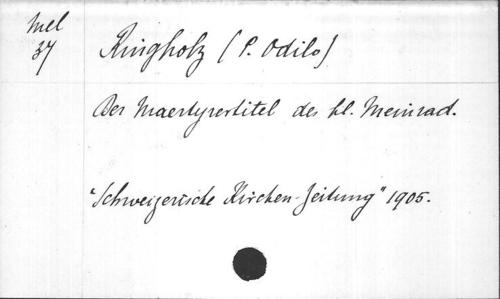 Mel
37
Ringholz (P. Odilo)
Der Maertyrertitel des hl. Meinrad.
"Schweizerische Kirchen-Zeitung" 1905.